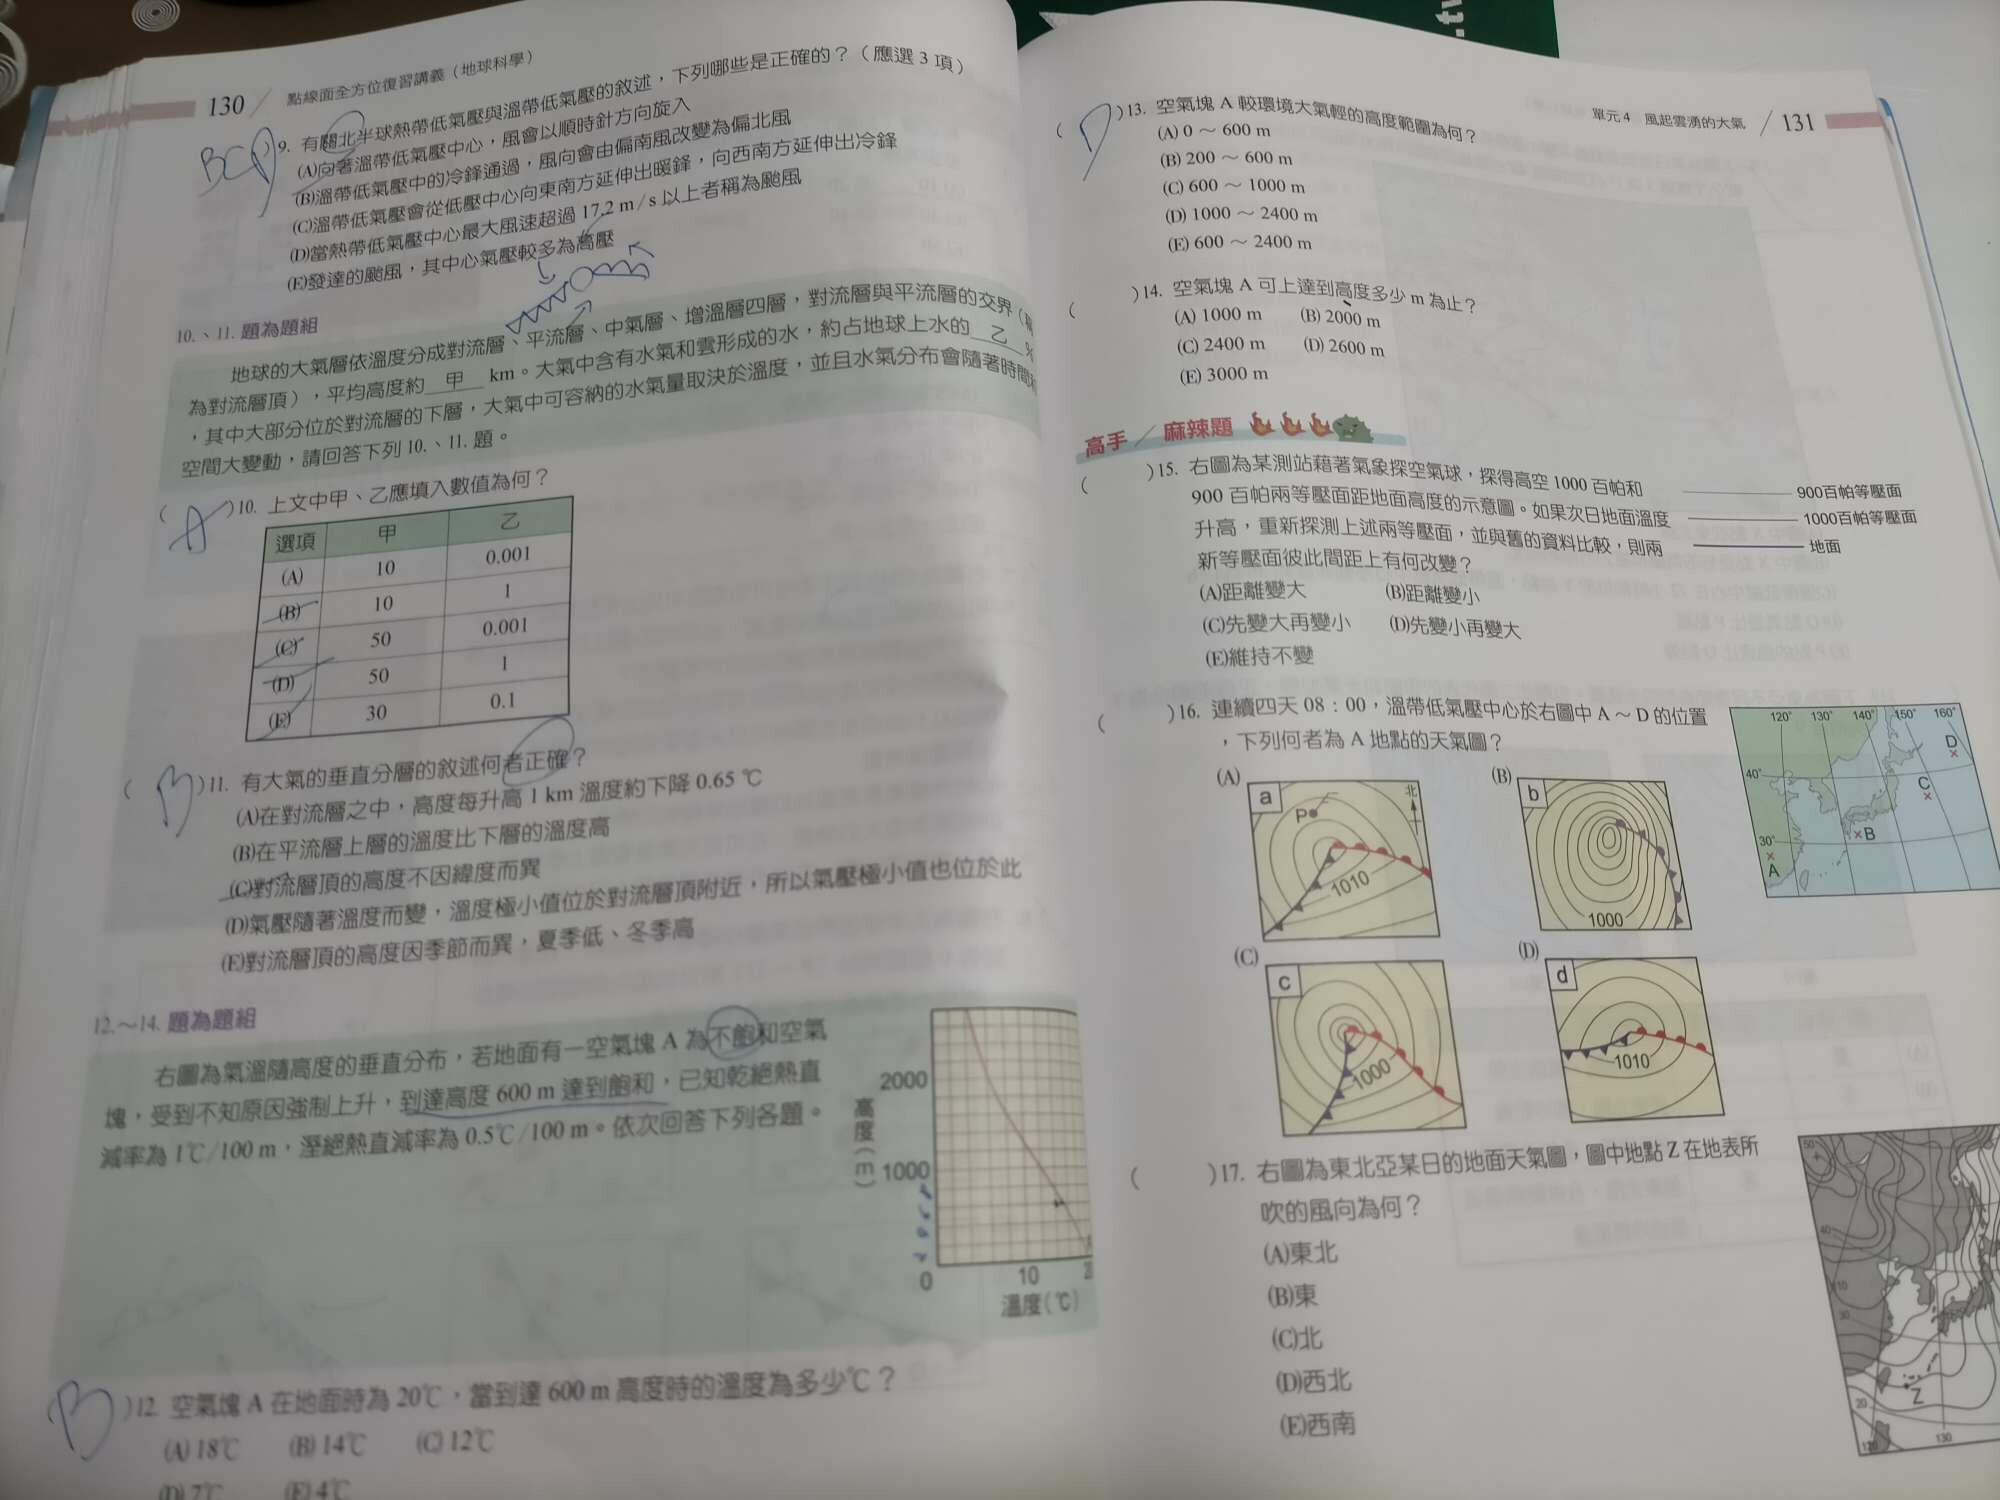 130 / 點線面全方位復習講義（地球科學）
BCD
( )9. 有關北半球熱帶低氣壓與溫帶低氣壓的敘述，下列哪些是正確的？（應選 3 項）
(A)向著溫帶低氣壓中心，風會以順時針方向旋入
(B)溫帶低氣壓中的冷鋒通過，風向會由偏南風改變為偏北風
(C)溫帶低氣壓會從低壓中心向東南方延伸出暖鋒，向西南方延伸出冷鋒
(D)當熱帶低氣壓中心最大風速超過 17.2 m / s 以上者稱為颱風
(E)發達的颱風，其中心氣壓較多為高壓
10.、11. 題為題組
地球的大氣層依溫度分成對流層、平流層、中氣層、增溫層四層，對流層與平流層的交界（稱
為對流層頂），平均高度約 甲 km。大氣中含有水氣和雲形成的水，約占地球上水的 乙 %
，其中大部分位於對流層的下層，大氣中可容納的水氣量取決於溫度，並且水氣分布會隨著時間和
空間大變動，請回答下列 10.、11. 題。
( A )10. 上文中甲、乙應填入數值為何？
選項 甲 乙
(A) 10 0.001
(B) 10 1
(C) 50 0.001
(D) 50 1
(E) 30 0.1
( B )11. 有大氣的垂直分層的敘述何者正確？
(A)在對流層之中，高度每升高 1 km 溫度約下降 0.65 ℃
(B)在平流層上層的溫度比下層的溫度高
(C)對流層頂的高度不因緯度而異
(D)氣壓隨著溫度而變，溫度極小值位於對流層頂附近，所以氣壓極小值也位於此
(E)對流層頂的高度因季節而異，夏季低、冬季高
12.～14. 題為題組
右圖為氣溫隨高度的垂直分布，若地面有一空氣塊 A 為不飽和空氣
塊，受到不知原因強制上升，到達高度 600 m 達到飽和，已知乾絕熱直
減率為 1℃/100 m，溼絕熱直減率為 0.5℃/100 m。依次回答下列各題。
2000
高度(m)
1000
0
10
溫度(℃)
( B )12. 空氣塊 A 在地面時為 20℃，當到達 600 m 高度時的溫度為多少℃？
(A) 18℃ (B) 14℃ (C) 12℃
(D) 7℃ (E) 4℃
單元 4 風起雲湧的大氣 / 131
( D )13. 空氣塊 A 較環境大氣輕的高度範圍為何？
(A) 0 ～ 600 m
(B) 200 ～ 600 m
(C) 600 ～ 1000 m
(D) 1000 ～ 2400 m
(E) 600 ～ 2400 m
( )14. 空氣塊 A 可上達到高度多少 m 為止？
(A) 1000 m (B) 2000 m
(C) 2400 m (D) 2600 m
(E) 3000 m
高手 / 麻辣題
( )15. 右圖為某測站藉著氣象探空氣球，探得高空 1000 百帕和
900 百帕兩等壓面距地面高度的示意圖。如果次日地面溫度
升高，重新探測上述兩等壓面，並與舊的資料比較，則兩
新等壓面彼此間距上有何改變？
(A)距離變大 (B)距離變小
(C)先變大再變小 (D)先變小再變大
(E)維持不變
900百帕等壓面
1000百帕等壓面
地面
( )16. 連續四天 08：00，溫帶低氣壓中心於右圖中 A ～ D 的位置
，下列何者為 A 地點的天氣圖？
120° 130° 140° 150° 160°
40°
30°
A
B
C
D
(A)
a
P
北
1010
(B)
b
1000
(C)
c
1000
(D)
d
1010
( )17. 右圖為東北亞某日的地面天氣圖，圖中地點 Z 在地表所
吹的風向為何？
(A)東北
(B)東
(C)北
(D)西北
(E)西南
50
40
30
20
Z
130